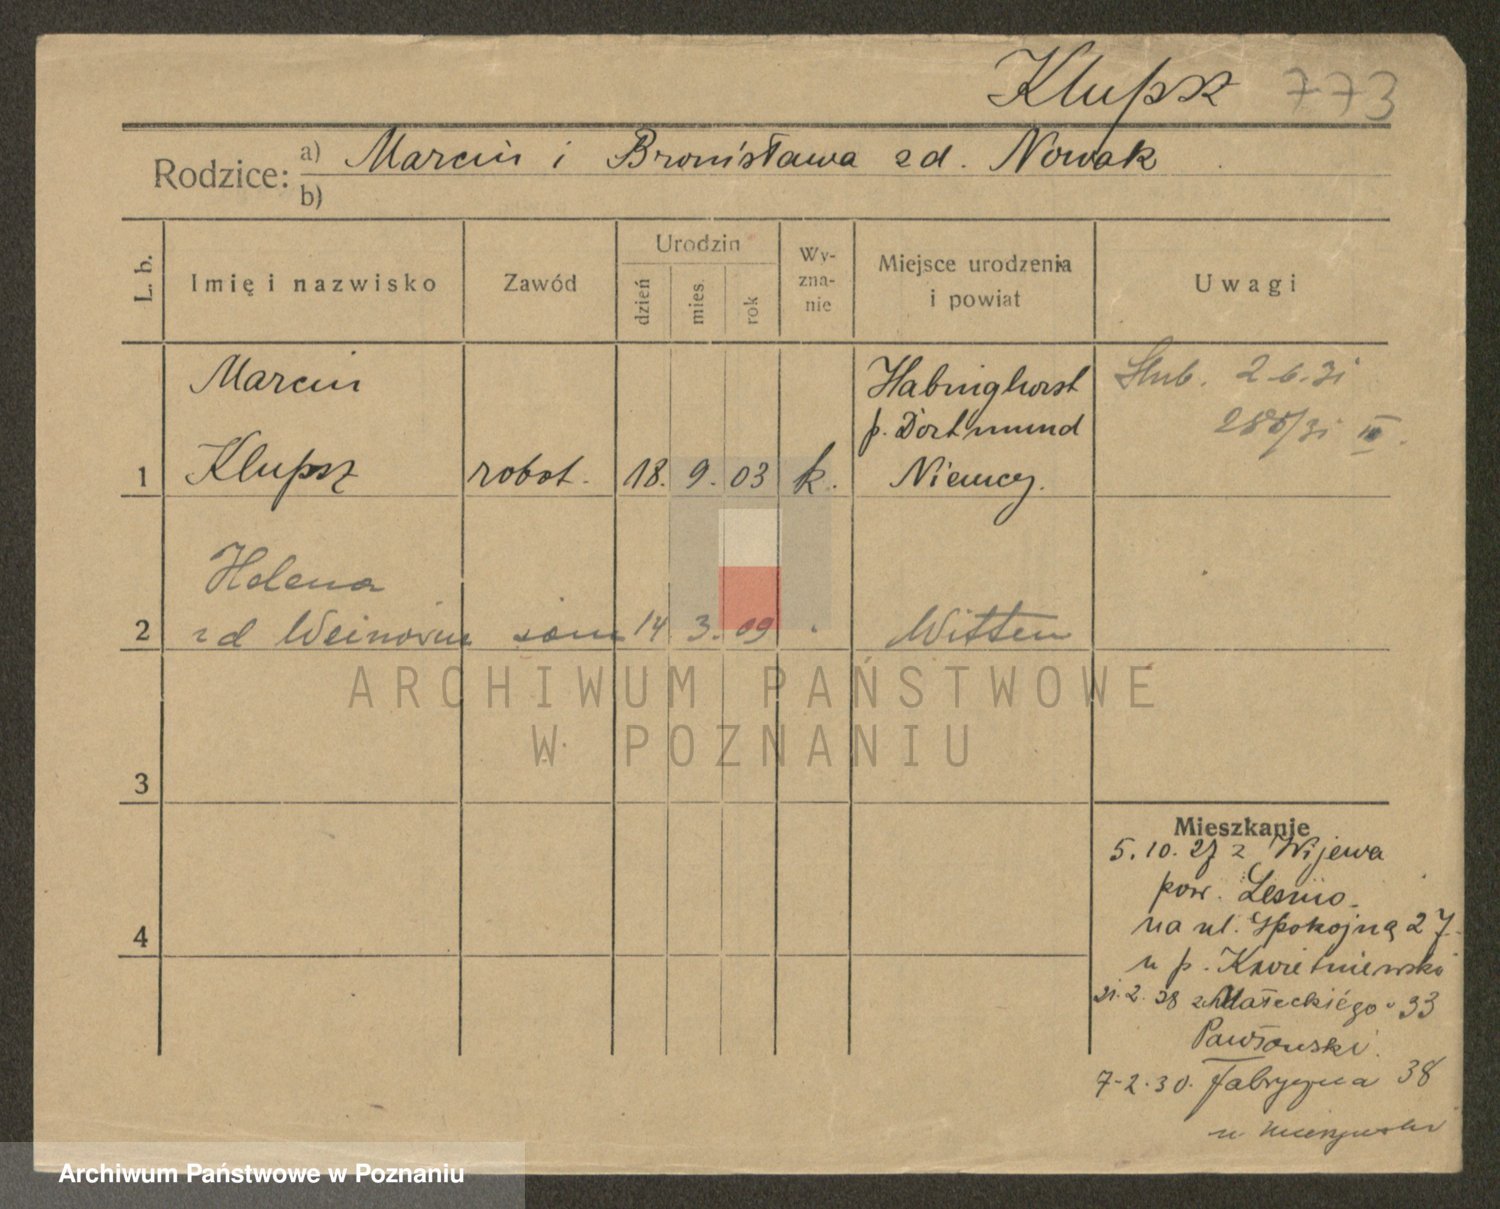 Klupsz 773
Rodzice: a) Marcin i Bronisława zd. Nowak
b)
L. b.
Imię i nazwisko
Zawód
Urodzin
dzień
mies.
rok
Wy-
zna-
nie
Miejsce urodzenia
i powiat
Uwagi
1
Marcin
Klupsz
robot.
18. 9. 03
k.
Habinghorst
p. Dortmund
Niemcy.
Ślub. 2.6.31
/31 III.
2
Helena
zd
14 3. 09
Witten
3
4
Mieszkanie
5.10.27 z Wijewa
pow. Leszno
na ul. Spokojną 27
u p. Kwietniewski
21.2.28 Małeckiego 33
Pawłowski.
7-2.30. Fabryczna 38
u
ARCHIWUM PAŃSTWOWE
W POZNANIU
Archiwum Państwowe w Poznaniu